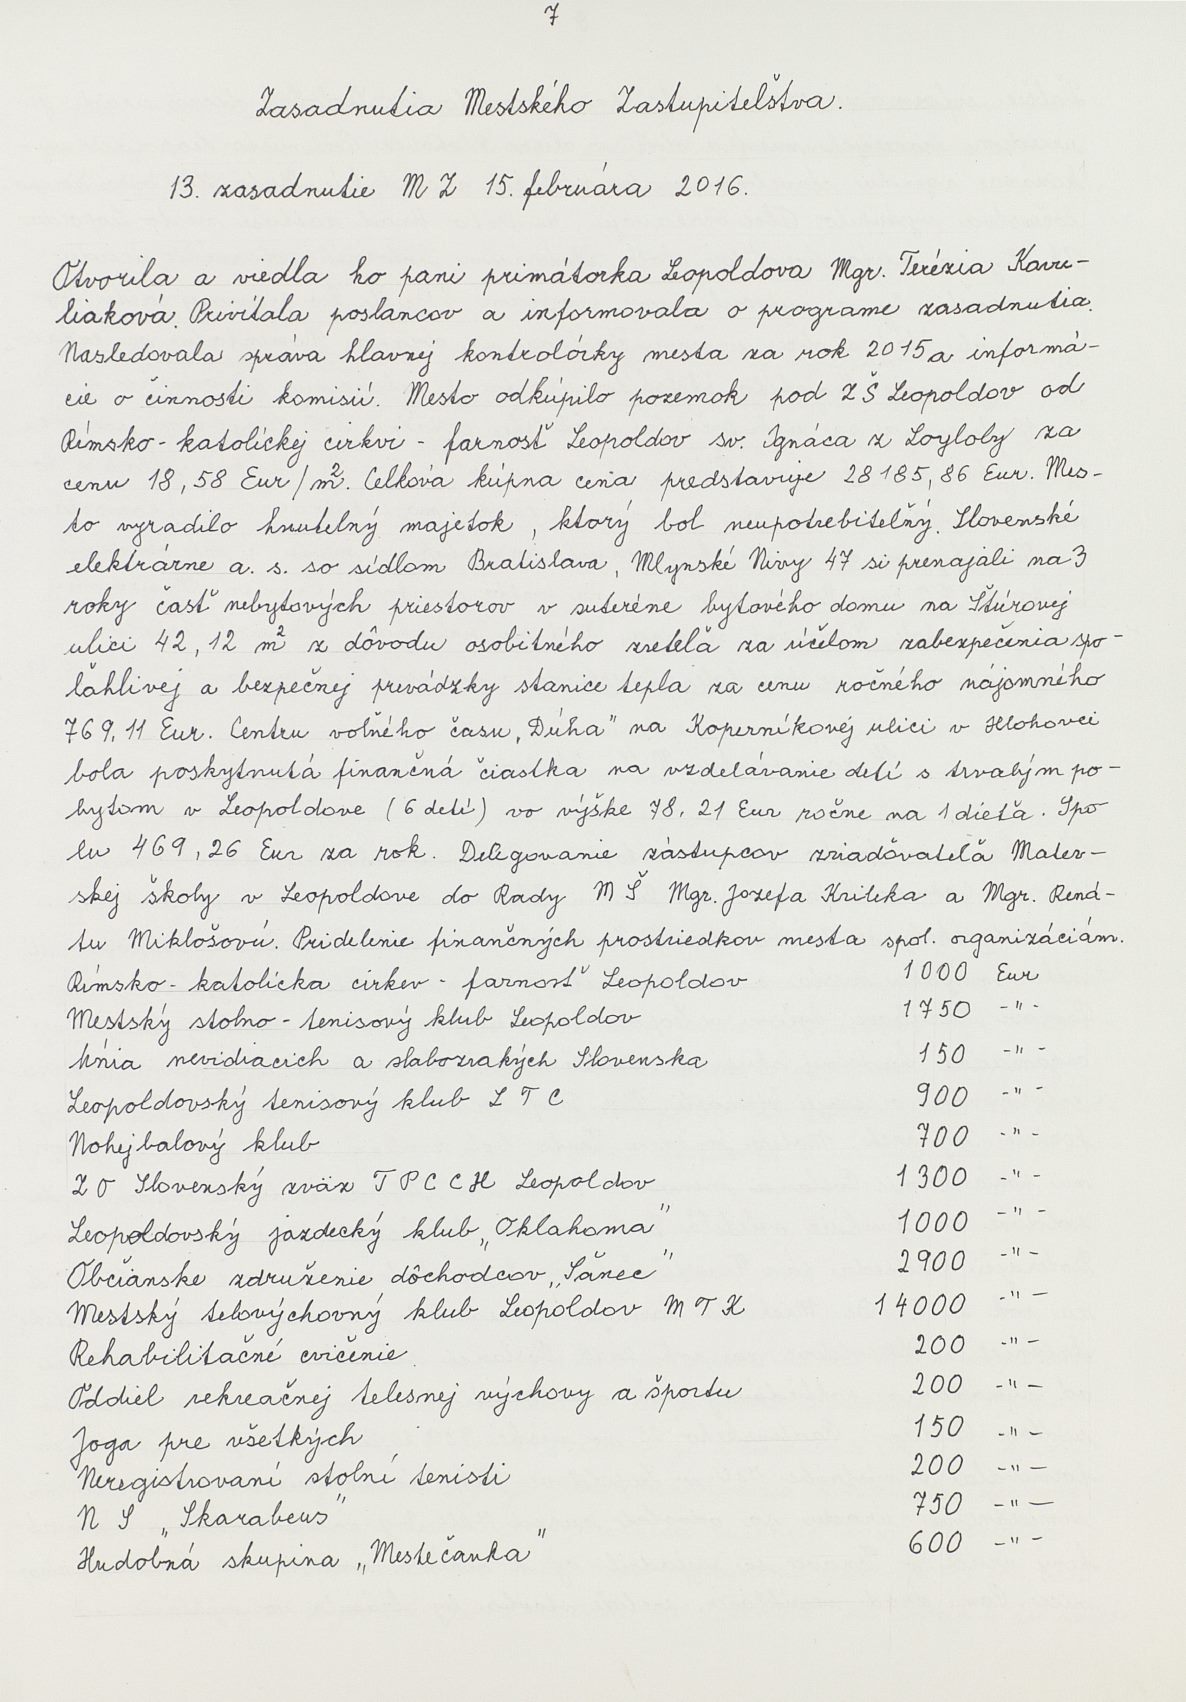 7
Zasadnutia Mestského Zastupiteľštva.
13. zasadnutie M Z 15. februára 2016.
Otvorila a viedla ho pani primátorka Leopoldova Mgr. Terézia Kavu-
liaková. Privítala poslancov a informovala o programe zasadnutia.
Nasledovala správa hlavnej kontrolórky mesta za rok 2015 a informá-
cie o činnosti komisií. Mesto odkúpilo pozemok pod ZŠ Leopoldov od
Rímsko - katolíckej cirkvi - farnosť Leopoldov sv. Ignáca z Loyloly za
cenu 18,58 Eur/m². Celková kúpna cena predstavuje 28185,86 Eur. Mes-
to vyradilo hnuteľný majetok, ktorý bol neupotrebiteľný. Slovenské
elektrárne a. s. so sídlom Bratislava, Mlynské Nivy 47 si prenajali na 3
roky časť nebytových priestorov v suteréne bytového domu na Štúrovej
ulici 42,12 m² z dôvodu osobitného zreteľa za účelom zabezpečenia spo-
ľahlivej a bezpečnej prevádzky stanice tepla za cenu ročného nájomného
769,11 Eur. Centru voľného času „Dúha" na Koperníkovej ulici v Hlohovci
bola poskytnutá finančná čiastka na vzdelávanie detí s trvalým po-
bytom v Leopoldove (6 detí) vo výške 78,21 Eur ročne na 1 dieťa. Spo
lu 469,26 Eur za rok. Delegovanie zástupcov zriaďovateľa Mater-
skej školy v Leopoldove do Rady M Š Mgr. Jozefa Krileka a Mgr. Rená-
tu Miklošovú. Pridelenie finančných prostriedkov mesta spol. organizáciám.
Rímsko - katolícka cirkev - farnosť Leopoldov 1000 Eur
Mestský stolno - tenisový klub Leopoldov 1750 -"-
Únia nevidiacich a slabozrakých Slovenska 150 -"-
Leopoldovský tenisový klub L T C 900 -"-
Nohejbalový klub 700 -"-
Z O Slovenský zväz T P C C H Leopoldov 1300 -"-
Leopoldovský jazdecký klub „Oklahoma" 1000 -"-
Občianske združenie dôchodcov „Šánec" 2900 -"-
Mestský telovýchovný klub Leopoldov M T K 14000 -"-
Rehabilitačné cvičenie 200 -"-
Oddiel rekreačnej telesnej výchovy a športu 200 -"-
Joga pre všetkých 150 -"-
Neregistrovaní stolní tenisti 200 -"-
N S „Skarabeus" 750 -"-
Hudobná skupina „Mestečanka" 600 -"-